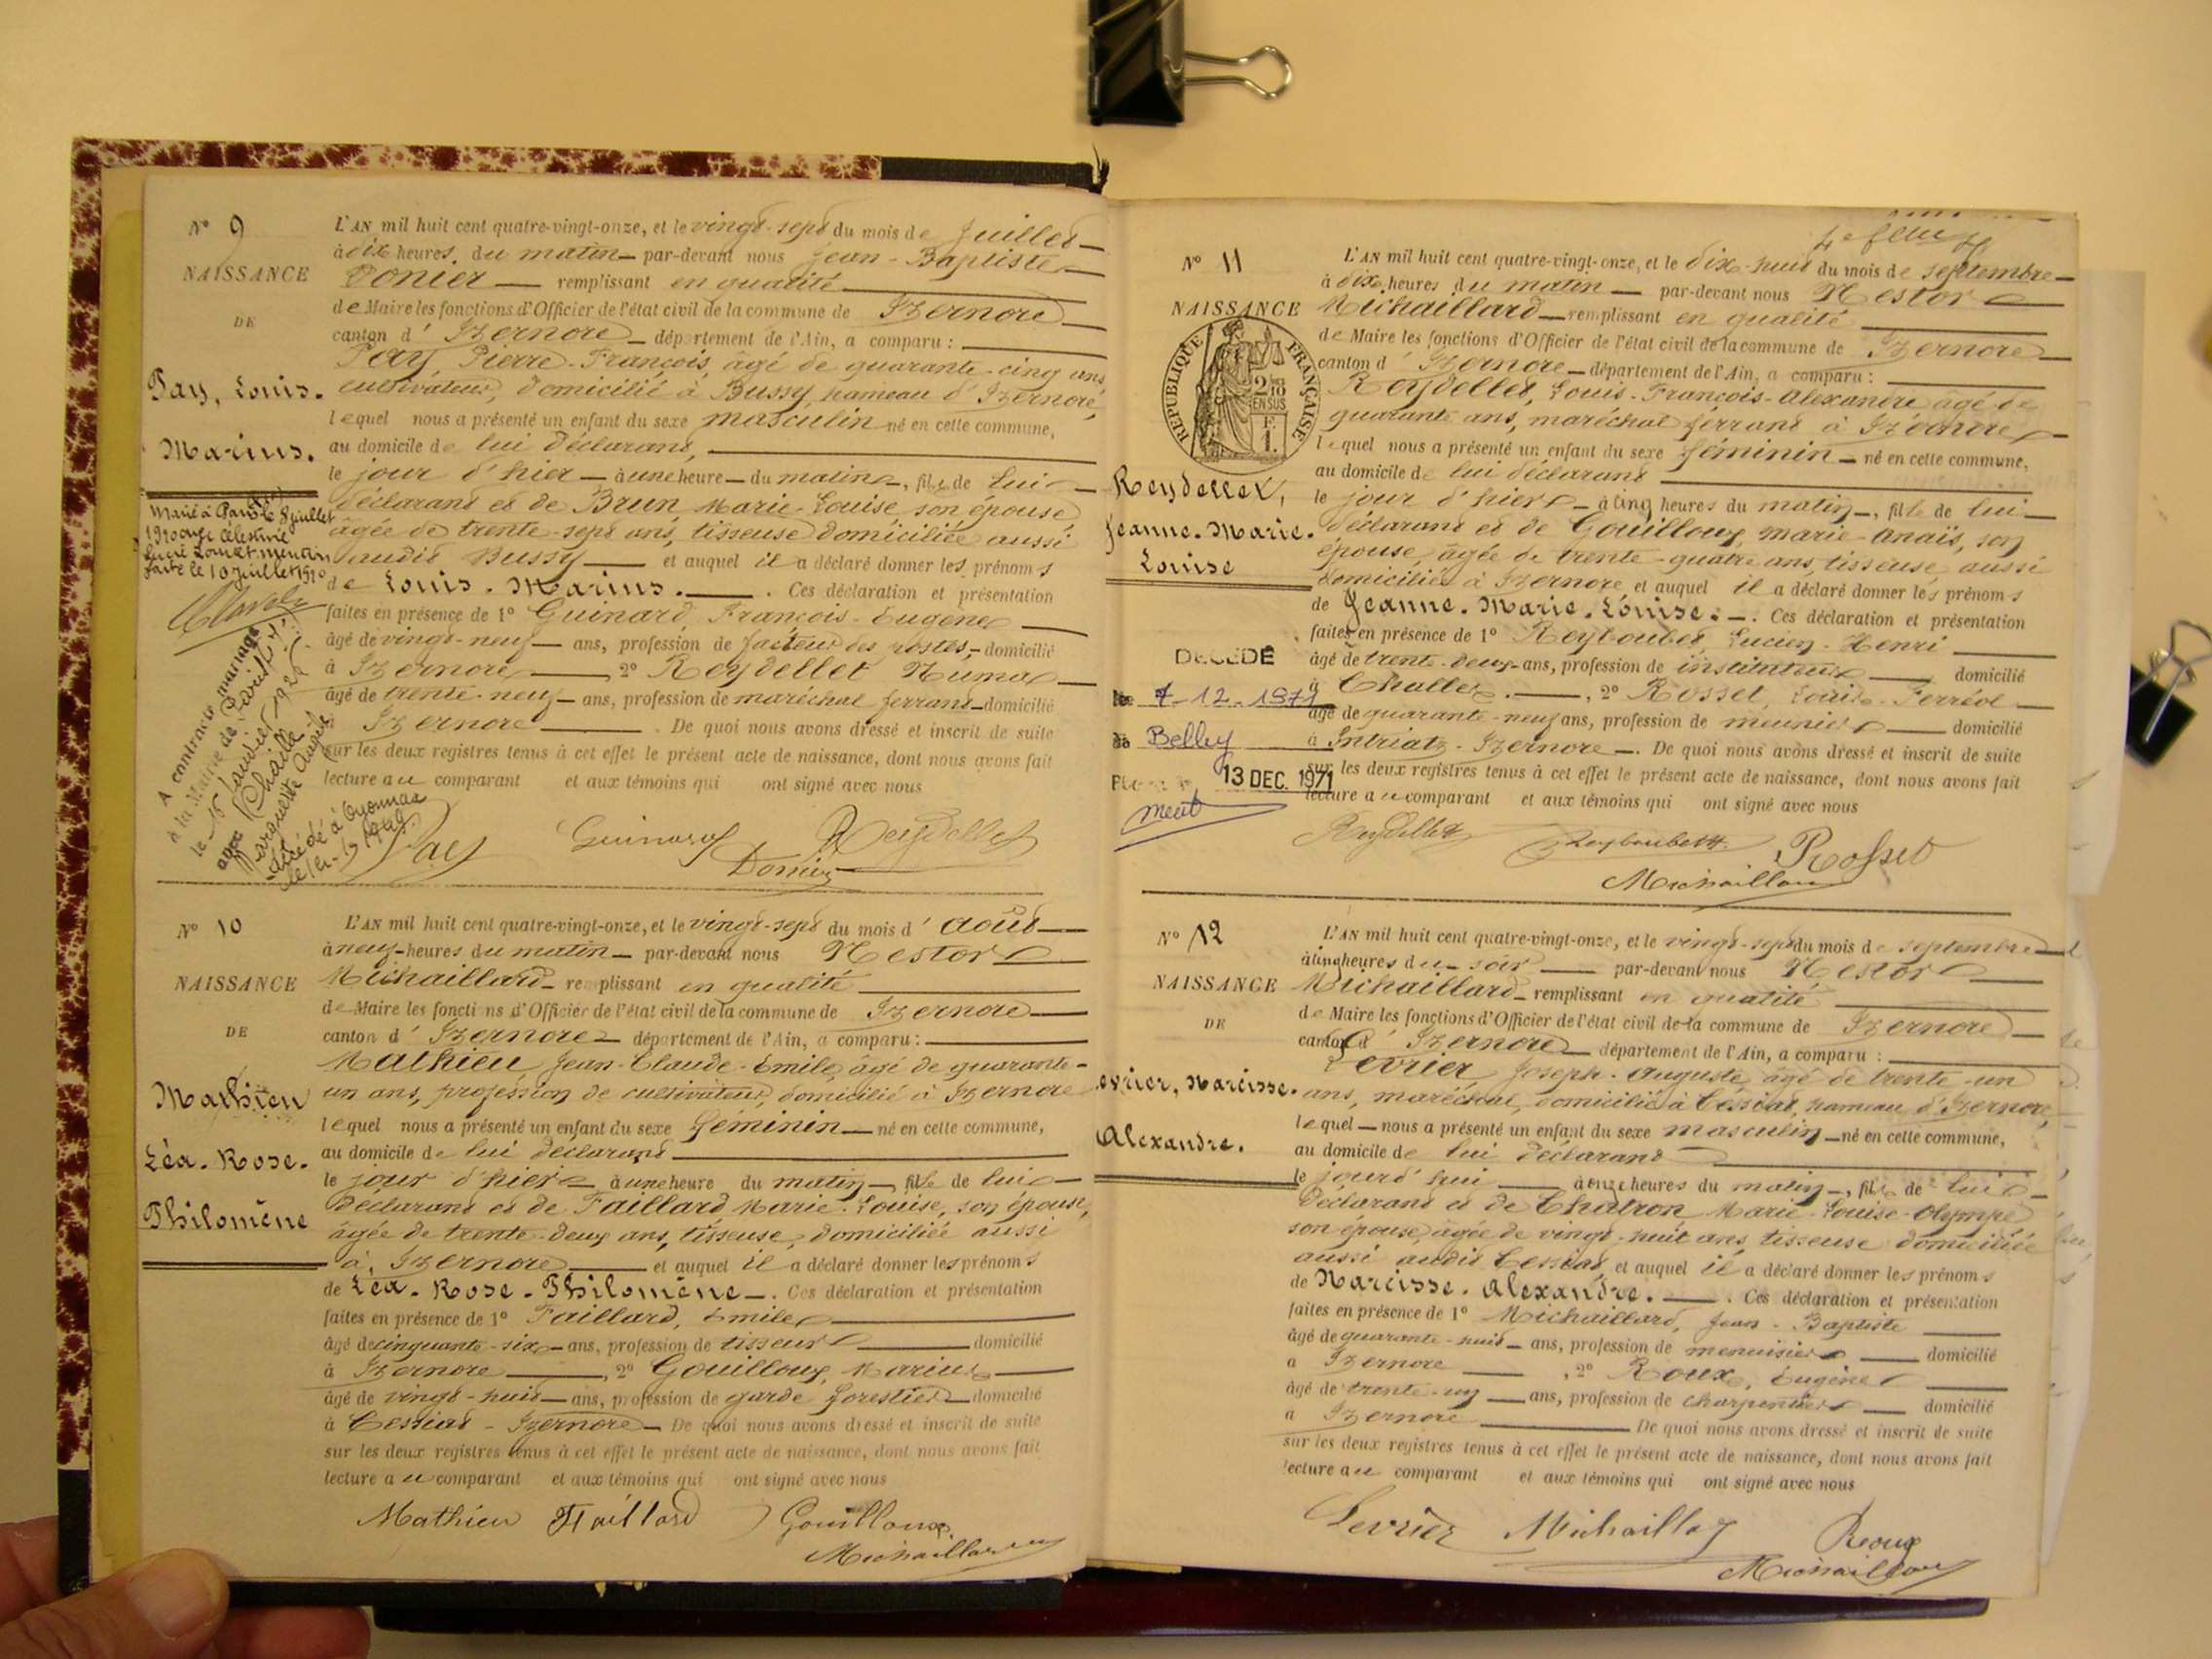 N° 9
NAISSANCE
DE
Pay, Louis.
Marius.
Marié à Paris le 8 juillet
1910 avec Célestine
faite le 10 juillet 1910
A contracté mariage
à la Mairie de Paris
le 16 Janvier
avec
décédé à Oyonnax
L'AN mil huit cent quatre-vingt-onze, et le vingt-sept du mois de Juillet
à dix heures du matin par-devant nous Jean-Baptiste
Donier remplissant en qualité
de Maire les fonctions d'Officier de l'état civil de la commune de Izernore
canton d' Izernore département de l'Ain, a comparu :
Pay, Pierre-François, âgé de quarante-cinq ans,
cultivateur, domicilié à Bussy, hameau d'Izernore,
lequel nous a présenté un enfant du sexe masculin né en cette commune,
au domicile de lui déclarant,
le jour d'hier à une heure du matin, fils de lui
déclarant et de Brun Marie-Louise son épouse
âgée de trente-sept ans, tisseuse domiciliée aussi
audit Bussy et auquel il a déclaré donner les prénoms
de Louis. Marius. Ces déclaration et présentation
faites en présence de 1° Guinard, François-Eugène
âgé de vingt-neuf ans, profession de facteur des postes, domicilié
à Izernore, 2° Reydellet Numa
âgé de trente-neuf ans, profession de maréchal ferrant domicilié
à Izernore. De quoi nous avons dressé et inscrit de suite
sur les deux registres tenus à cet effet le présent acte de naissance, dont nous avons fait
lecture au comparant et aux témoins qui ont signé avec nous
Pay Guinard Reydellet
Donier
N° 10
NAISSANCE
DE
Mathieu
Léa. Rose.
Philomène
L'AN mil huit cent quatre-vingt-onze, et le vingt-sept du mois d' août
à neuf heures du matin par-devant nous Nestor
Michaillard remplissant en qualité
de Maire les fonctions d'Officier de l'état civil de la commune de Izernore
canton d' Izernore département de l'Ain, a comparu :
Mathieu Jean-Claude-Emile, âgé de quarante-
un ans, profession de cultivateur, domicilié à Izernore
lequel nous a présenté un enfant du sexe féminin né en cette commune,
au domicile de lui déclarant
le jour d'hier à une heure du matin, fille de lui
déclarant et de Faillard Marie-Louise, son épouse,
âgée de trente-deux ans, tisseuse, domiciliée aussi
à Izernore et auquel il a déclaré donner les prénoms
de Léa. Rose. Philomène. Ces déclaration et présentation
faites en présence de 1° Faillard, Emile
âgé de cinquante-six ans, profession de tisseur domicilié
à Izernore, 2° Gouilloux, Marius
âgé de vingt-huit ans, profession de garde forestier domicilié
à Cessiat-Izernore De quoi nous avons dressé et inscrit de suite
sur les deux registres tenus à cet effet le présent acte de naissance, dont nous avons fait
lecture au comparant et aux témoins qui ont signé avec nous
Mathieu Faillard Gouilloux
Michaillard
N° 11
NAISSANCE
RÉPUBLIQUE FRANÇAISE
2/10
EN SUS
F.
1.
Reydellet,
Jeanne-Marie.
Louise
DÉCÉDÉ
7-12-1971
Belley
13 DEC. 1971
L'AN mil huit cent quatre-vingt-onze, et le dix-huit du mois de septembre
à dix heures du matin par-devant nous Nestor
Michaillard remplissant en qualité
de Maire les fonctions d'Officier de l'état civil de la commune de Izernore
canton d' Izernore département de l'Ain, a comparu :
Reydellet, Louis-François-Alexandre âgé de
quarante ans, maréchal ferrant à Izernore
lequel nous a présenté un enfant du sexe féminin né en cette commune,
au domicile de lui déclarant
le jour d'hier à cinq heures du matin, fille de lui
déclarant et de Gouilloux, Marie-Anaïs, son
épouse, âgée de trente-quatre ans, tisseuse, aussi
domiciliée à Izernore, et auquel il a déclaré donner les prénoms
de Jeanne. Marie. Louise. Ces déclaration et présentation
faites en présence de 1° Reyboubet, Lucien-Henri
âgé de trente-deux ans, profession de instituteur domicilié
à Challes, 2° Rosset, Louis-Ferréol
âgé de quarante-neuf ans, profession de meunier domicilié
à Intriat-Izernore. De quoi nous avons dressé et inscrit de suite
sur les deux registres tenus à cet effet le présent acte de naissance, dont nous avons fait
lecture au comparant et aux témoins qui ont signé avec nous
Reydellet Reyboubet H. Rosset
Michaillard
N° 12
NAISSANCE
DE
Levrier, Narcisse.
Alexandre.
L'AN mil huit cent quatre-vingt-onze, et le vingt-sept du mois de septembre
à cinq heures du soir par-devant nous Nestor
Michaillard remplissant en qualité
de Maire les fonctions d'Officier de l'état civil de la commune de Izernore
canton d' Izernore département de l'Ain, a comparu :
Levrier Joseph-Auguste, âgé de trente-un
ans, maréchal, domicilié à Cessiat, hameau d'Izernore,
lequel nous a présenté un enfant du sexe masculin né en cette commune,
au domicile de lui déclarant
le jourd'hui à onze heures du matin, fils de lui
déclarant et de Chatron Marie-Louise-Olympe
son épouse, âgée de vingt-huit ans, tisseuse domiciliée
aussi audit Cessiat, et auquel il a déclaré donner les prénoms
de Narcisse. Alexandre. Ces déclaration et présentation
faites en présence de 1° Michaillard, Jean-Baptiste
âgé de quarante-huit ans, profession de menuisier domicilié
à Izernore, 2° Roux, Eugène
âgé de trente-un ans, profession de charpentier domicilié
à Izernore De quoi nous avons dressé et inscrit de suite
sur les deux registres tenus à cet effet le présent acte de naissance, dont nous avons fait
lecture au comparant et aux témoins qui ont signé avec nous
Levrier Michaillard Roux
Michaillard